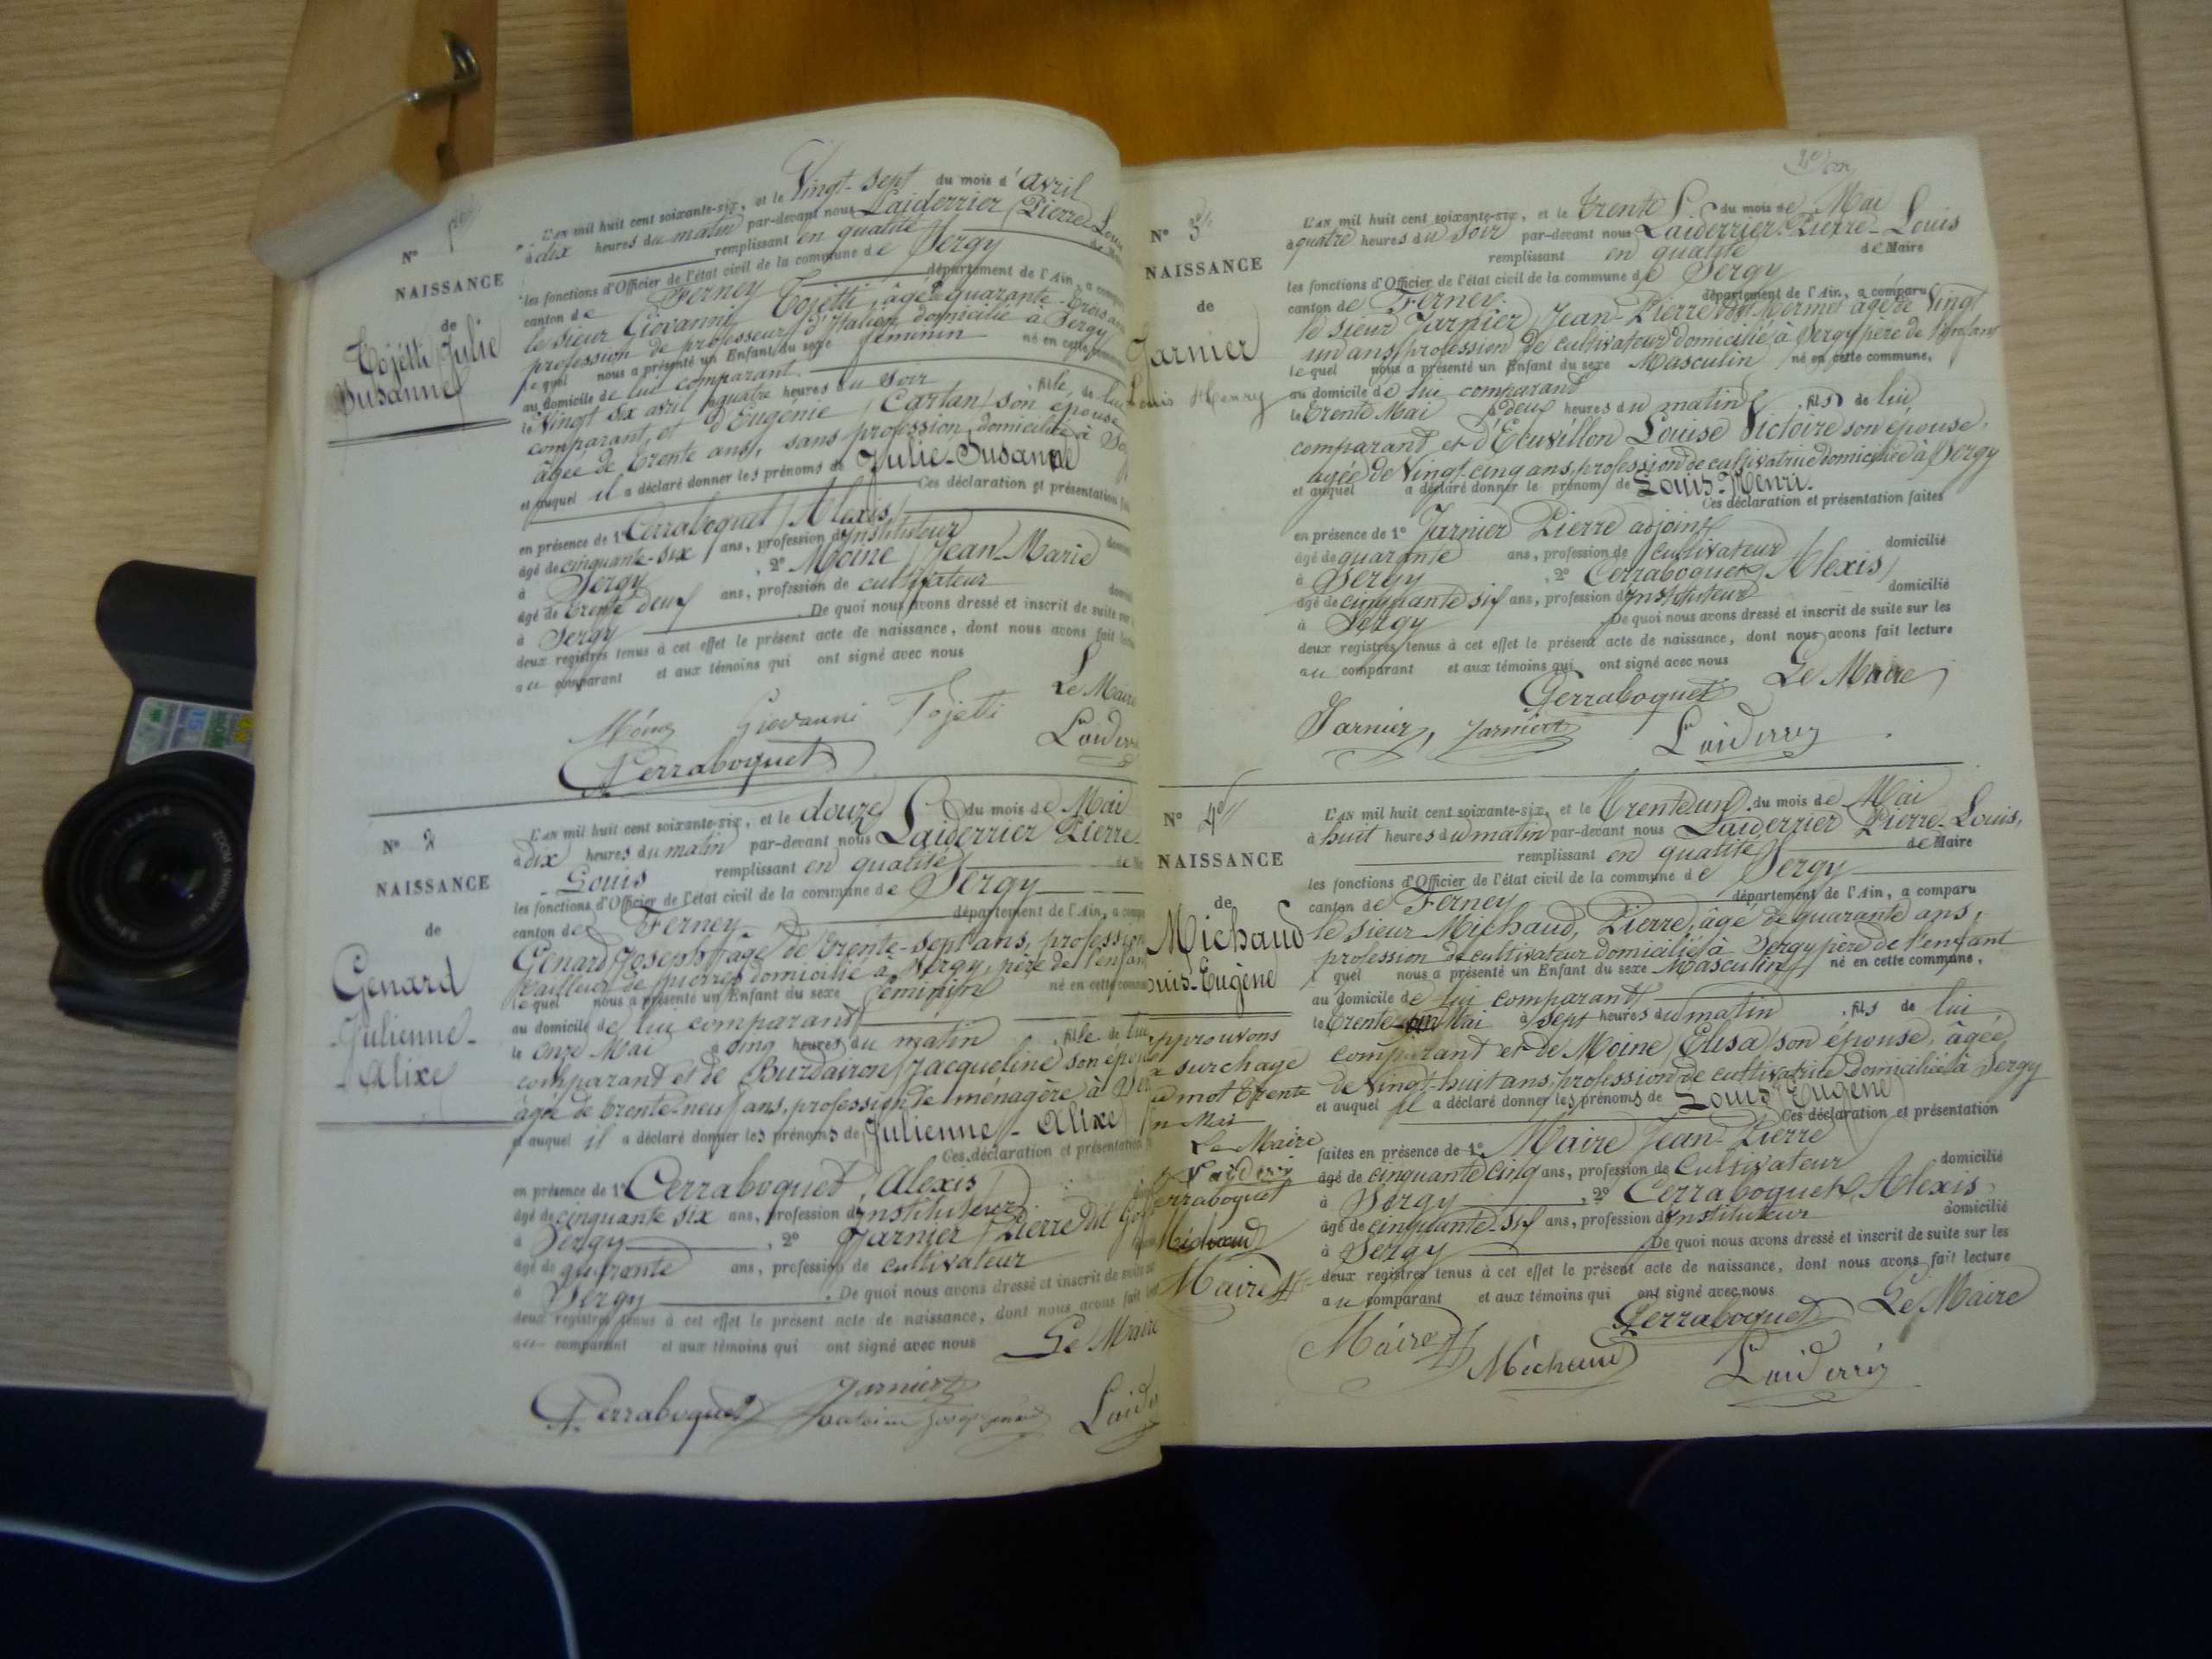 N° 1er
NAISSANCE
de
Tojetti Julie
Susanne
L'an mil huit cent soixante-six, et le Vingt-sept du mois d'avril
à dix heures du matin par-devant nous Laiderrier Pierre Louis
remplissant en qualité de Maire
les fonctions d'Officier de l'état civil de la commune de Sergy
canton de Ferney département de l'Ain, a comparu
le sieur Giovanni Tojetti, âgé de quarante-trois ans
profession de professeur d'Italien domicilié à Sergy
lequel nous a présenté un Enfant du sexe féminin né en cette commune
au domicile de lui comparant
le Vingt six avril à quatre heures du soir, fille de lui
comparant, et d'Eugénie Cartan son épouse
âgée de trente ans, sans profession domiciliée à
et auquel il a déclaré donner les prénoms de Julie-Susanne
Ces déclaration et présentation
en présence de 1° Cerraboquet Alexis
âgé de cinquante-six ans, profession d'instituteur
à Sergy, 2° Moine Jean-Marie
âgé de trente deux ans, profession de cultivateur
à Sergy De quoi nous avons dressé et inscrit de suite sur
deux registres tenus à cet effet le présent acte de naissance, dont nous avons fait
au comparant et aux témoins qui ont signé avec nous
Le Maire
Giovanni Tojetti
Cerraboquet
N° 2
NAISSANCE
de
Genard
Julienne-
Alixe
L'an mil huit cent soixante-six, et le douze du mois de Mai
à dix heures du matin par-devant nous Laiderrier Pierre-
-Louis remplissant en qualité
les fonctions d'Officier de l'état civil de la commune de Sergy
canton de Ferney département de l'Ain, a
Genard Joseph âgé de trente-sept ans, profession
tailleur de pierres domicilié à Sergy, père de l'enfant
lequel nous a présenté un Enfant du sexe féminin né en cette
au domicile de lui comparant
le onze Mai à cinq heures du matin, fille de lui
comparant et de Burdairon Jacqueline son épouse
âgée de trente-neuf ans, profession de ménagère à
et auquel il a déclaré donner les prénoms de Julienne-Alixe
Ces déclaration et présentation
en présence de 1° Cerraboquet, Alexis
âgé de cinquante six ans, profession d'instituteur
à Sergy, 2° Jarnier Pierre dit
âgé de quarante ans, profession de cultivateur
à Sergy. De quoi nous avons dressé et inscrit de suite
deux registres tenus à cet effet le présent acte de naissance, dont nous avons fait
au comparant et aux témoins qui ont signé avec nous
Le Maire
Jarnier
Cerraboquet
N° 3e
NAISSANCE
de
Jarnier
Louis Henry
L'an mil huit cent soixante-six, et le trente du mois de Mai
à quatre heures du soir par-devant nous Laiderrier Pierre-Louis
remplissant en qualité de Maire
les fonctions d'Officier de l'état civil de la commune de Sergy
canton de Ferney. département de l'Ain, a comparu
le sieur Jarnier Jean-Pierre dit âgé de Vingt
un ans, profession de cultivateur domicilié à Sergy père de l'enfant
lequel nous a présenté un Enfant du sexe Masculin né en cette commune,
au domicile de lui comparant
le trente Mai à deux heures du matin, fils de lui
comparant et d'Ecuvillon Louise Victoire son épouse,
agée de Vingt-cinq ans, profession de cultivatrice domiciliée à Sergy
et auquel a déclaré donner le prénoms de Louis-Henri.
Ces déclaration et présentation faites
en présence de 1° Jarnier Pierre adjoint
âgé de quarante ans, profession de cultivateur domicilié
à Sergy, 2° Cerraboquet Alexis
âgé de cinquante six ans, profession d'instituteur domicilié
à Sergy De quoi nous avons dressé et inscrit de suite sur les
deux registres tenus à cet effet le présent acte de naissance, dont nous avons fait lecture
au comparant et aux témoins qui ont signé avec nous
Le Maire
Cerraboquet
Jarnier, Jarnier
Laiderrier
N° 4e
NAISSANCE
de
Michaud
Louis-Eugène
approuvons
la surchage
du mot trente
un Mai
Le Maire
Laiderrier
Cerraboquet
Michaud
Maire
L'an mil huit cent soixante-six, et le trente un du mois de Mai
à huit heures du matin par-devant nous Laiderrier Pierre-Louis,
remplissant en qualité de Maire
les fonctions d'Officier de l'état civil de la commune de Sergy
canton de Ferney département de l'Ain, a comparu
le sieur Michaud, Pierre, âgé de quarante ans,
profession de cultivateur domicilié à Sergy père de l'enfant
lequel nous a présenté un Enfant du sexe Masculin né en cette commune,
au domicile de lui comparant
le trente-un Mai à sept heures du matin, fils de lui
comparant et de Moine Elisa son épouse, âgée
de Vingt-huit ans, profession de cultivatrice domiciliée à Sergy
et auquel il a déclaré donner les prénoms de Louis Eugène
Ces déclaration et présentation
faites en présence de 1° Maire Jean-Pierre
âgé de cinquante cinq ans, profession de Cultivateur domicilié
à Sergy, 2° Cerraboquet Alexis
âgé de cinquante-six ans, profession d'instituteur domicilié
à Sergy De quoi nous avons dressé et inscrit de suite sur les
deux registres tenus à cet effet le présent acte de naissance, dont nous avons fait lecture
au comparant et aux témoins qui ont signé avec nous
Cerraboquet Le Maire
Maire Michaud Laiderrier